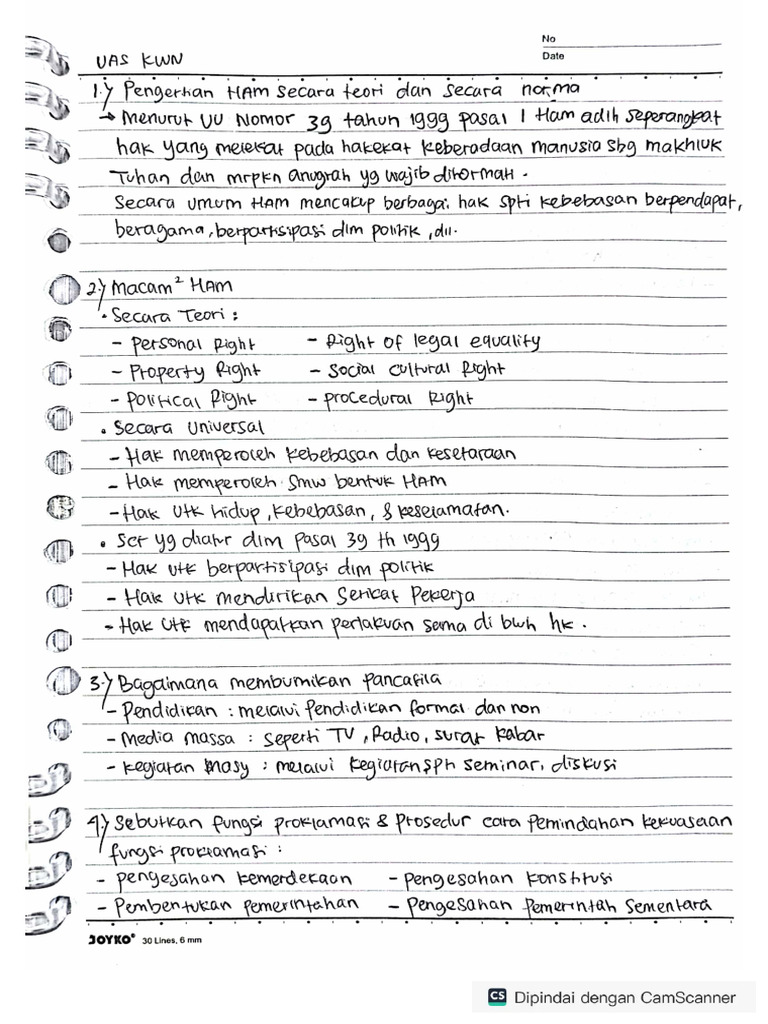 No
Date
UAS KWN
1.) Pengertian HAM secara teori dan secara norma
→ Menurut UU Nomor 39 tahun 1999 pasal 1 Ham adlh seperangkat
hak yang melekat pada hakekat keberadaan manusia sbg makhluk
Tuhan dan mrpkn anugrah yg wajib dihormati.
Secara umum HAM mencakup berbagai hak spti kebebasan berpendapat,
beragama, berpartisipasi dlm politik, dll.
2.) Macam² HAM
• Secara Teori :
- Personal Right - Right of legal equality
- Property Right - Social cultural Right
- Political Right - procedural Right
• Secara Universal
- Hak memperoleh kebebasan dan kesetaraan
- Hak memperoleh smw bentuk HAM
- Hak utk hidup, kebebasan, & keselamatan.
• Scr yg diatur dlm Pasal 39 th 1999
- Hak utk berpartisipasi dlm politik
- Hak utk mendirikan Serikat Pekerja
- Hak utk mendapatkan perlakuan sama di bwh hk.
3.) Bagaimana membumikan Pancasila
- Pendidikan : melalui Pendidikan formal dan non
- Media massa : seperti TV, Radio, surat kabar
- Kegiatan Masy : melalui kegiatan sprti seminar, diskusi
4.) Sebutkan fungsi proklamasi & Prosedur cara Pemindahan kekuasaan
fungsi proklamasi :
- pengesahan kemerdekaan - pengesahan konstitusi
- Pembentukan pemerintahan - Pengesahan Pemerintah Sementara
JOYKO® 30 Lines, 6 mm
CS Dipindai dengan CamScanner